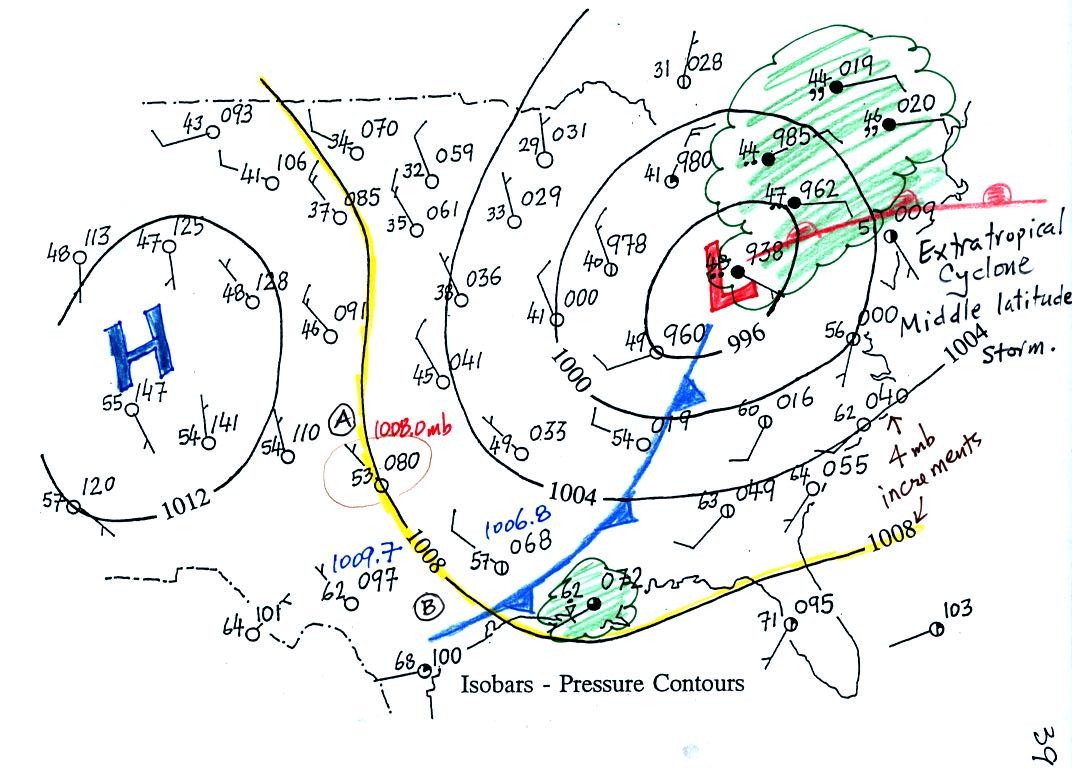 31 028
44 019
43 093
34 070
29 031
44 985
46 020
41 106
32 059
41 980
37 085
35 061
33 029
47 962
009
48 113
47 125
40 978
938
Extratropical
Cyclone
Middle latitude
storm.
48 128
036
41 000
46 091
49 960
996
56 000
1004
H
L
55 147
45 041
1000
54 141
54 110
A
1008.0 mb
53 080
49 033
54 019
60 016
62 040
4 mb
increments
57 120
1012
1004
63 049
64 055
1008
1006.8
57 068
1008
1009.7
62 097
B
62 072
64 101
71 095
103
68 100
Isobars - Pressure Contours
39